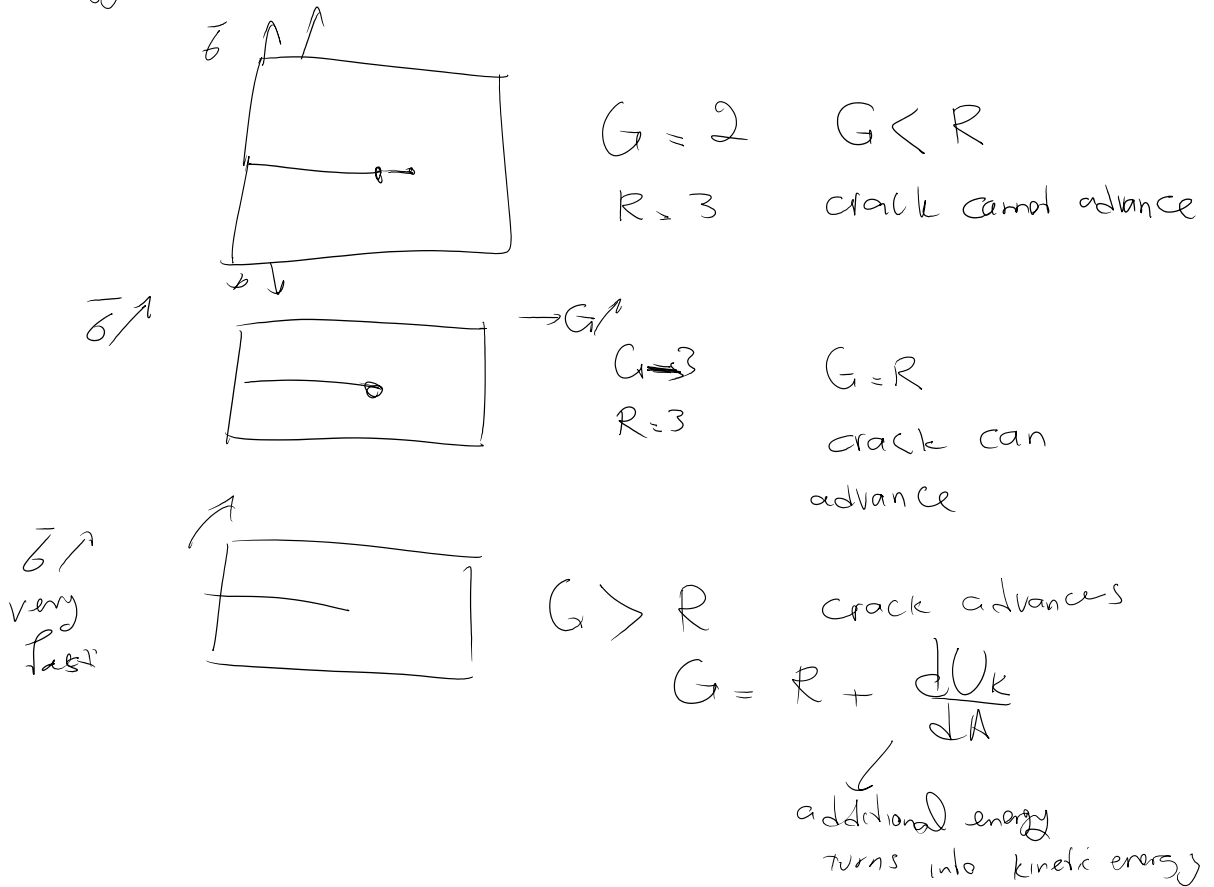 σ̄
G = 2 G < R
R = 3 crack cannot advance
σ̄ ↗ → G ↗
G = 3 G = R
R = 3 crack can
advance
σ̄ ↗
very
fast
G > R crack advances
G = R + dU_K/dA
additional energy
turns into kinetic energy